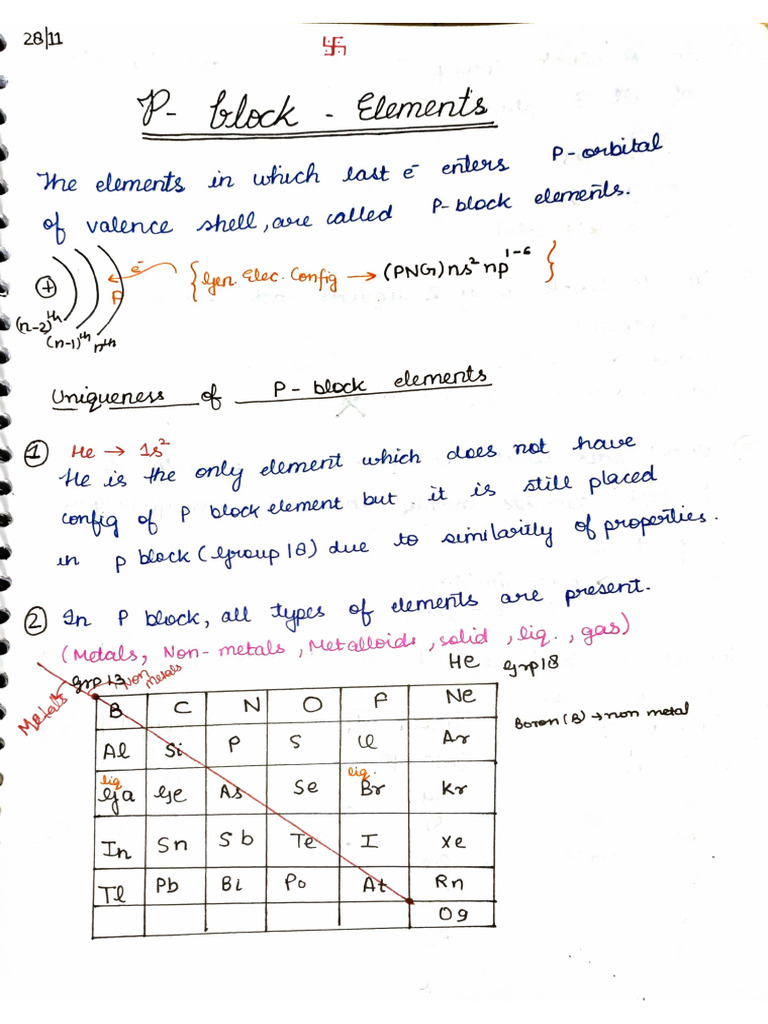 28/11
卐
P- block - Elements
The elements in which last e⁻ enters P-orbital
of valence shell, are called P-block elements.
e⁻ {Gen. Elec. Config → (PNG) ns² np¹⁻⁶}
+ P
(n-2)ᵗʰ
(n-1)ᵗʰ nᵗʰ
Uniqueness of P- block elements
① He → 1s²
He is the only element which does not have
config of P block element but it is still placed
in p block (Group 18) due to similarity of properties.
② In P block, all types of elements are present.
(Metals, Non-metals, Metalloids, solid, liq., gas)
Metals Grp 13 Non metals He Grp 18
B C N O F Ne
Boron (B) → non metal
Al Si P S Cl Ar
liq liq.
Ga Ge As Se Br Kr
In Sn Sb Te I Xe
Tl Pb Bi Po At Rn
Og